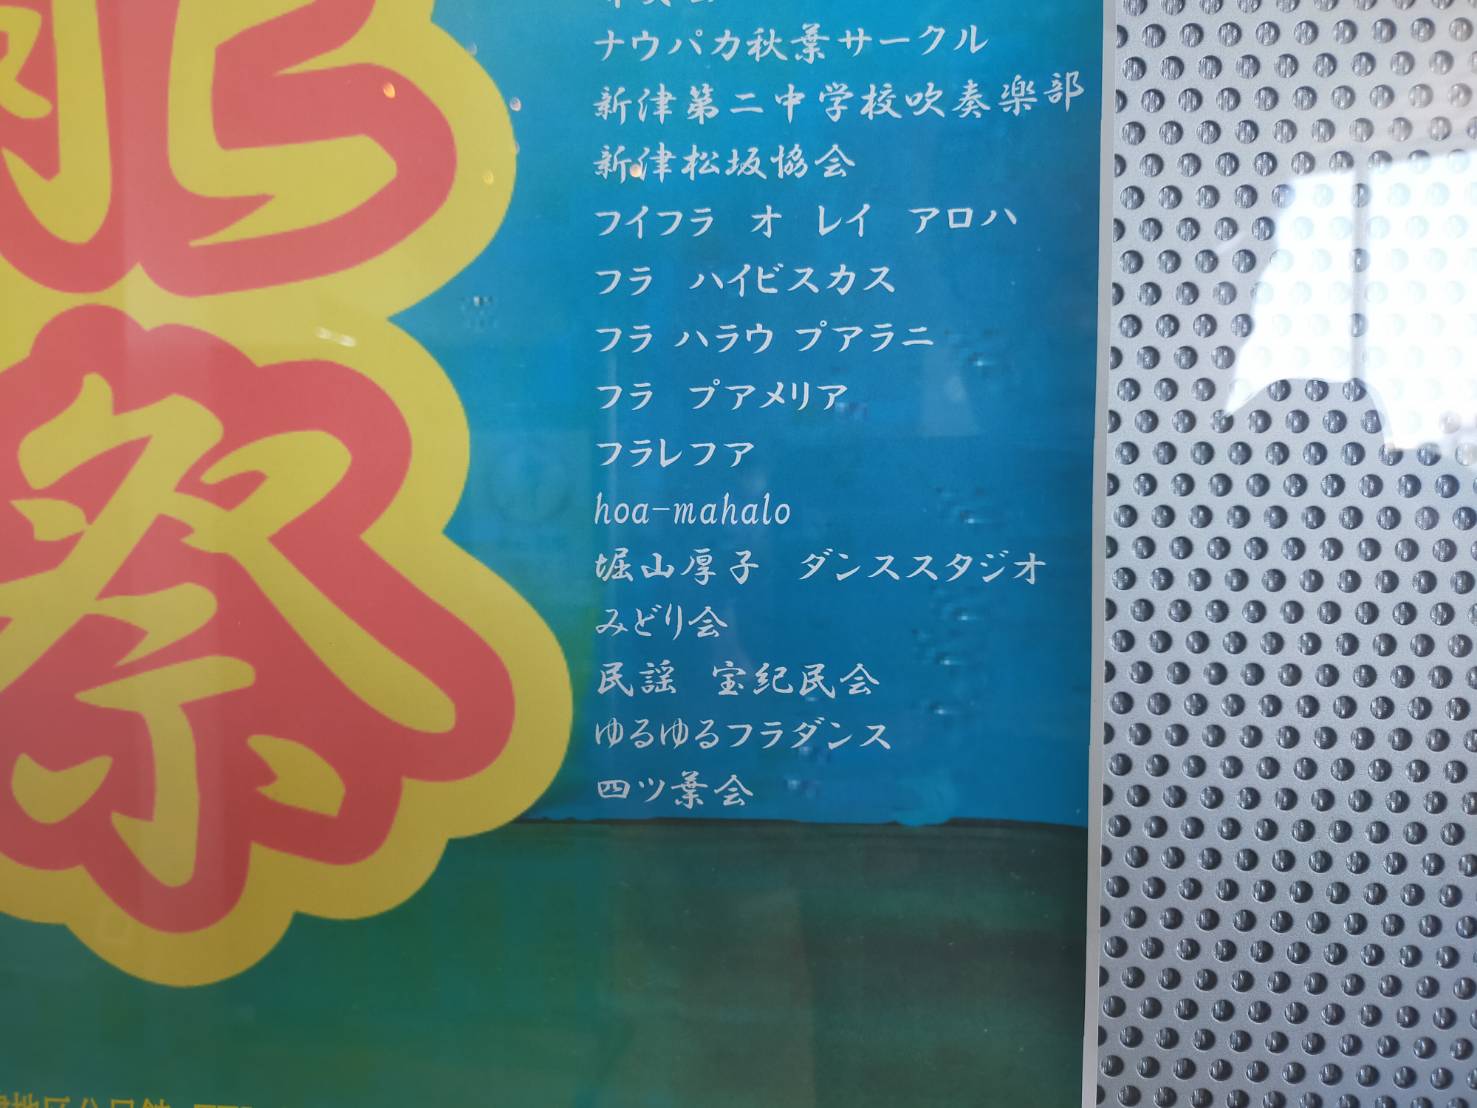 能
祭
ナウパカ秋葉サークル
新津第二中学校吹奏楽部
新津松坂協会
フイフラ　オ　レイ　アロハ
フラ　ハイビスカス
フラ ハラウ プアラニ
フラ　プアメリア
フラレフア
hoa-mahalo
堀山厚子　ダンススタジオ
みどり会
民謡　宝紀民会
ゆるゆるフラダンス
四ツ葉会